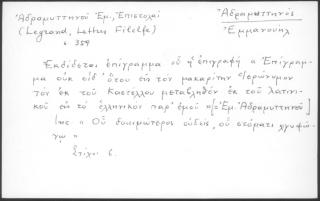 Ἀδραμυττηνοῦ Ἐμ., Ἐπιστολαί
(Legrand, Lettres Filelfe)
σ. 359
Ἀδραμυττηνός
Ἐμμανουήλ
Ἐκδίδεται ἐπίγραμμα οὗ ἡ ἐπιγραφή "Ἐπίγραμ-
μα οὐκ οἶδ' ὅτου εἰς τὸν μακαρίτην Ἱερώνυμον
τὸν ἐκ τοῦ Καστέλλου μεταβληθὲν ἐκ τοῦ λατινι-
κοῦ εἰς τὸ ἑλληνικὸν παρ' ἐμοῦ" [= Ἐμ. Ἀδραμυττηνοῦ]
"Οὗ δοκιμώτερος οὐδείς, οὗ στόματι
Στίχοι 6.